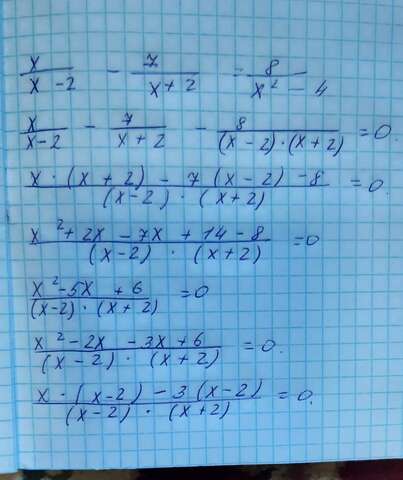 x/(x-2) - 7/(x+2) = 8/(x²-4)
x/(x-2) - 7/(x+2) - 8/((x-2)·(x+2)) = 0.
(x·(x+2) - 7(x-2) - 8)/((x-2)·(x+2)) = 0.
(x²+2x-7x+14-8)/((x-2)·(x+2)) = 0
(x²-5x+6)/((x-2)·(x+2)) = 0
(x²-2x-3x+6)/((x-2)·(x+2)) = 0.
(x·(x-2)-3(x-2))/((x-2)·(x+2)) = 0.